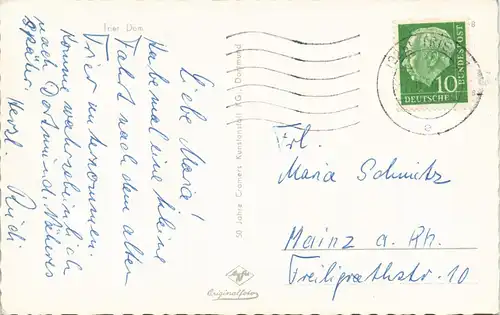 Trier Dom
Liebe Maria!
Habe mal eine kleine
Fahrt nach dem alten
Trier unternommen.
Komme wahrscheinlich
nach Dortmund. Näheres
später. Herzl. Rudi
50 Jahre Cramers Kunstanstalt KG., Dortmund
Agfa
Originalfoto
10
DEUTSCHE
BUNDESPOST
Frl.
Maria Schmitz
Mainz a. Rh.
Freiligrathstr. 10